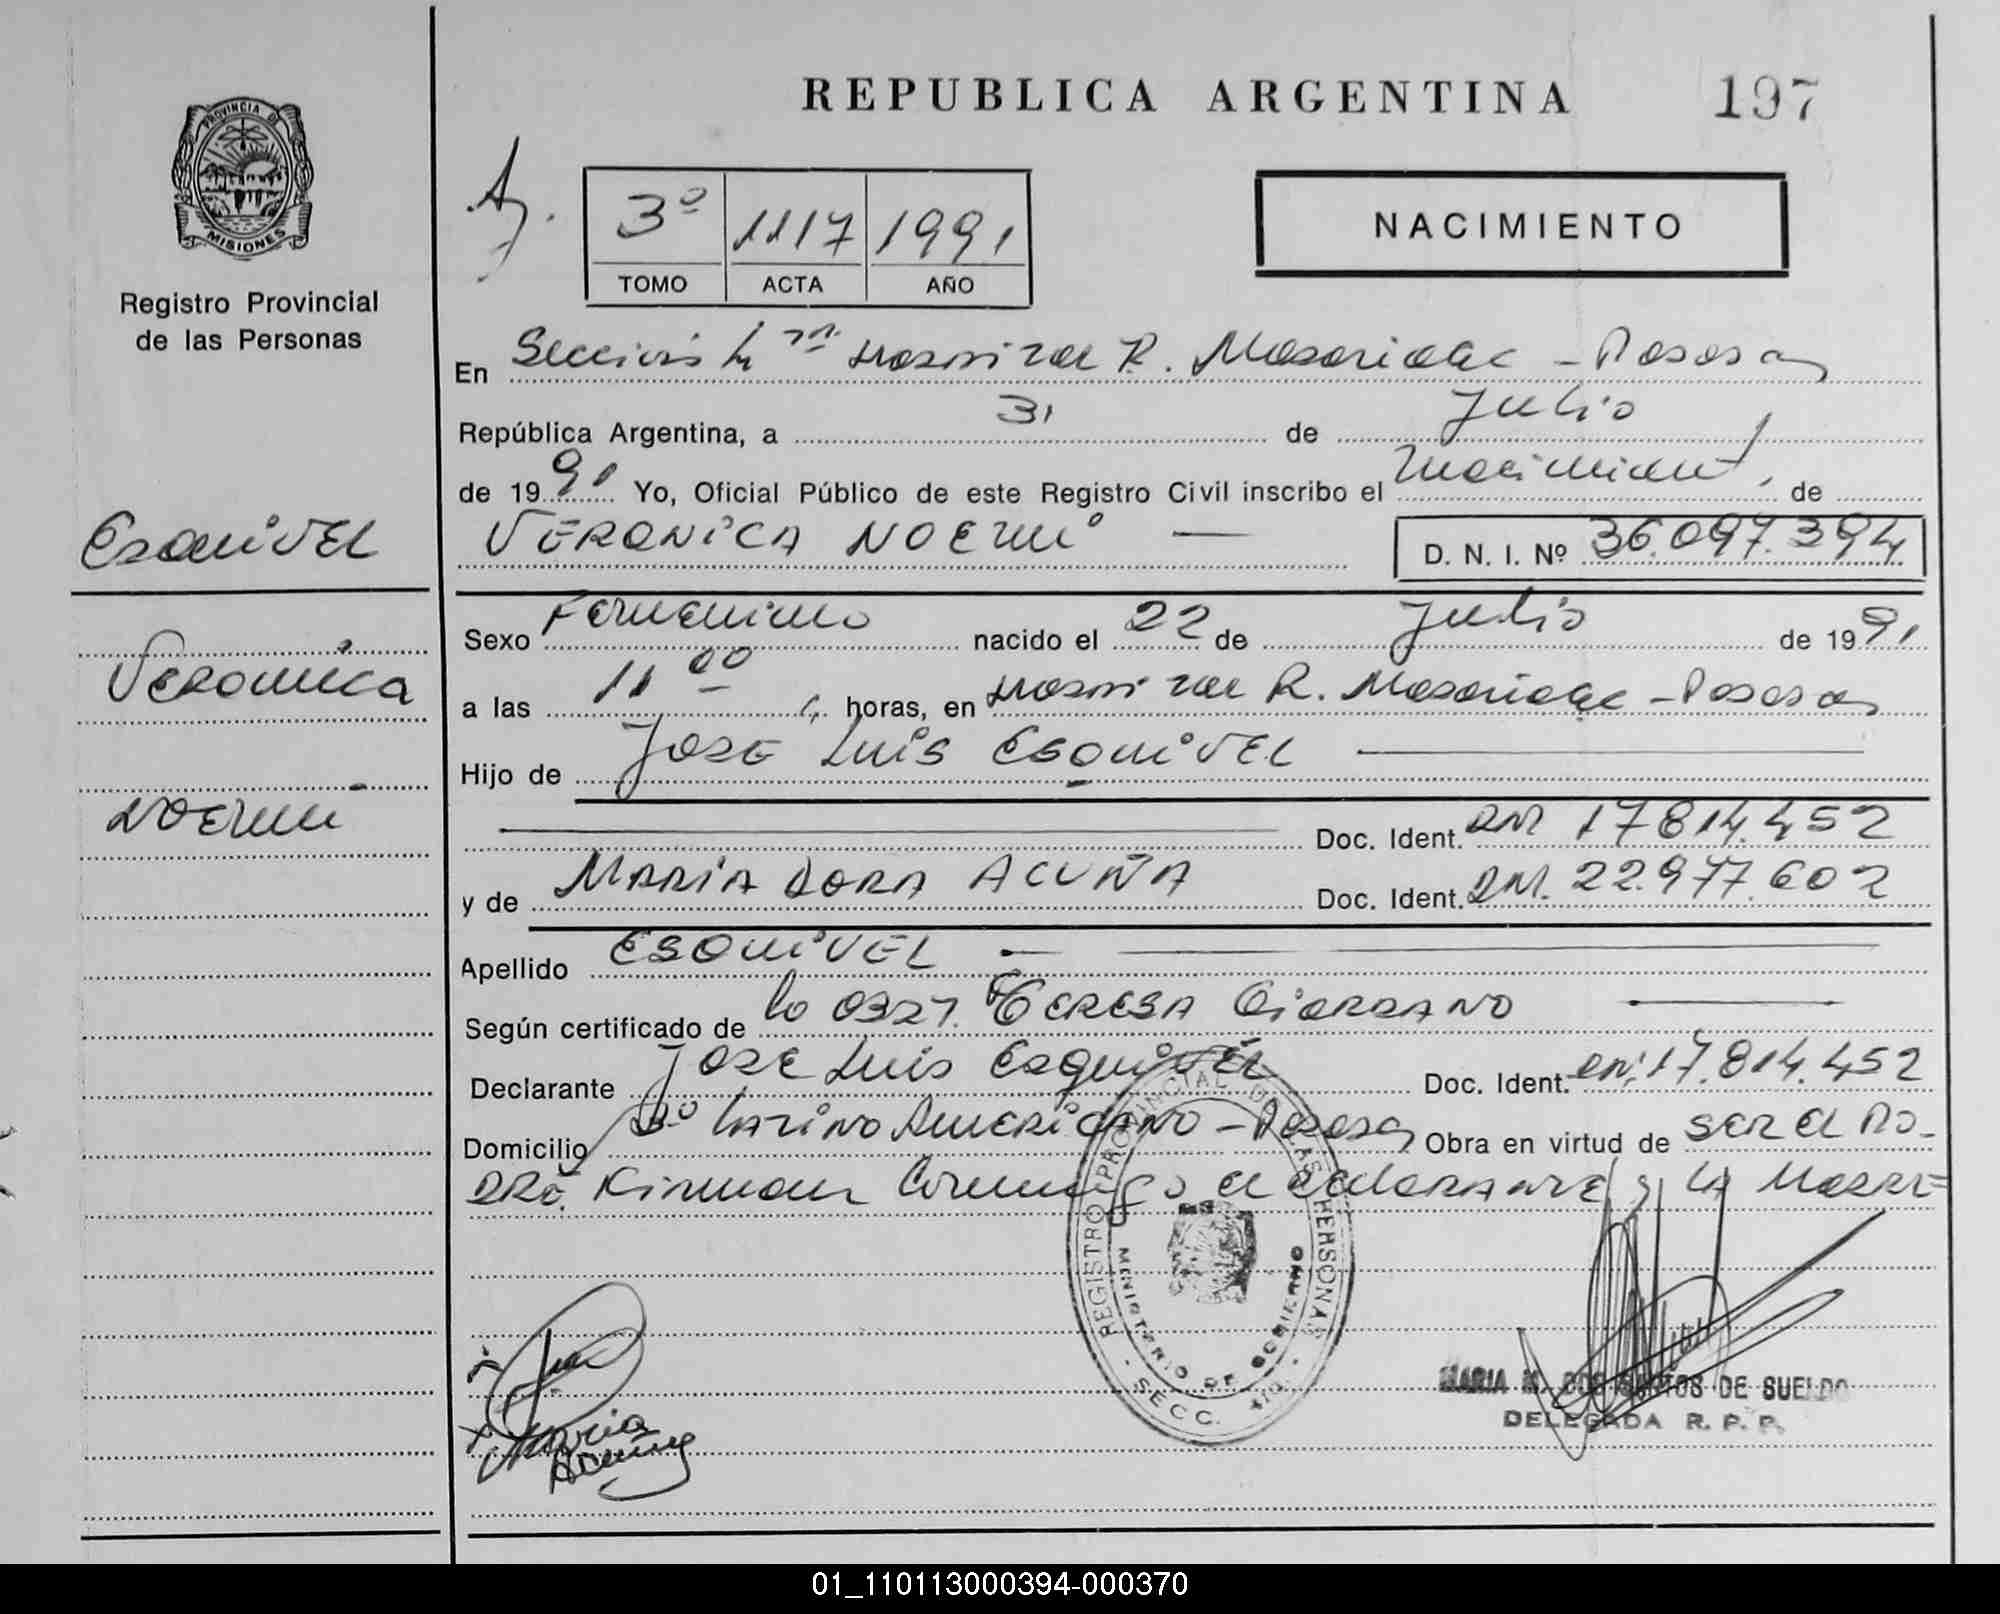 REPUBLICA ARGENTINA
197
PROVINCIA DE
MISIONES
Registro Provincial
de las Personas
3º 1117 1991
TOMO ACTA AÑO
NACIMIENTO
En Sección 4ta Hospital R. Madariaga - Posadas
República Argentina, a 31 de Julio
de 1991 Yo, Oficial Público de este Registro Civil inscribo el nacimiento, de
VERONICA NOEMI D. N. I. Nº 36.097.394
Esquivel
Veronica
Noemi
Sexo Femenino nacido el 22 de Julio de 1991
a las 11 00 horas, en Hospital R. Madariaga - Posadas
Hijo de Jose Luis Esquivel
Doc. Ident. DNI 17814.452
y de Maria Dora Acuña Doc. Ident. DNI. 22.977.602
Apellido Esquivel
Según certificado de Teresa Giordano
Declarante Jose Luis Esquivel Doc. Ident. DNI. 17.814.452
Domicilio Bº Latino Americano - Posadas Obra en virtud de ser el Pa-
dre. Firman conmigo el declarante y la Madre
REGISTRO PROVINCIAL DE LAS PERSONAS
MINISTERIO DE GOBIERNO
SECC. 4TA.
Maria
Acuña
MARIA M. DOS SANTOS DE SUELDO
DELEGADA R. P. P.
01_110113000394-000370